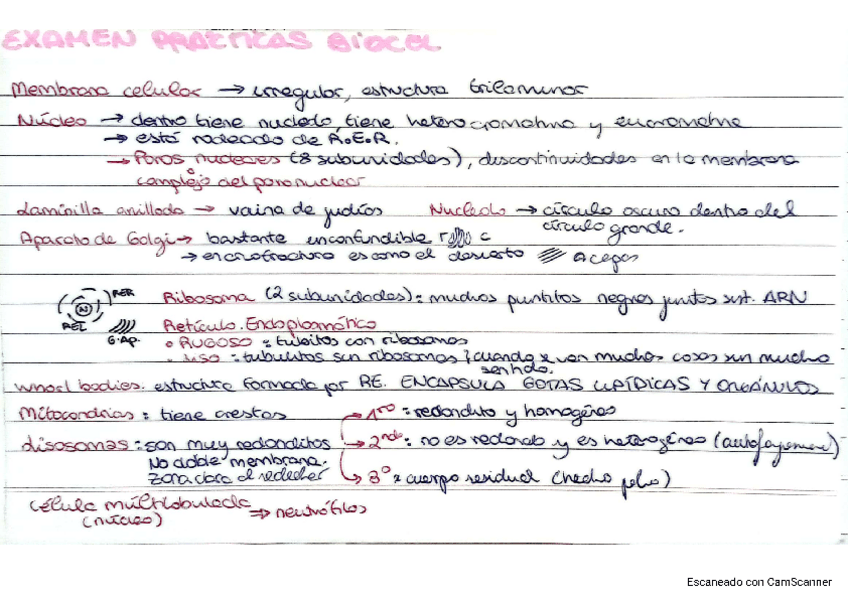 EXAMEN PRACTICAS BIOCEL
Membrana celular → irregular, estructura trilaminar
Núcleo → dentro tiene nucleolo, tiene heterocromatina y eucromatina
→ está rodeado de R.E.R.
→ Poros nucleares (8 subunidades), discontinuidades en la membrana
complejo del poro nuclear
Laminilla anillada → vaina de judías Nucleolo → círculo oscuro dentro del
círculo grande.
Aparato de Golgi → bastante inconfundible
→ en criofractura es como el desierto a cegas
RER
N
REL
G.Ap.
Ribosoma (2 subunidades): muchos puntitos negros juntos sint. ARN
Retículo Endoplasmático
• RUGOSO: tubitos con ribosomas
• LISO: tubulitos sin ribosomas (cuando x van muchas cosas sin mucho
sentido.
Whorl bodies. estructura formada por RE. ENCAPSULA GOTAS LIPÍDICAS Y ORGÁNULOS
Mitocondrias: tiene crestas → 1ro: redondito y homogéneo
Lisosomas: son muy redonditos → 2ndo: no es redondo y es heterogéneo
No doble membrana.
Zona clara alrededor → 3º x cuerpo residual (hecho polvo)
célula multilobulada
(núcleo) → neutrófilos
Escaneado con CamScanner